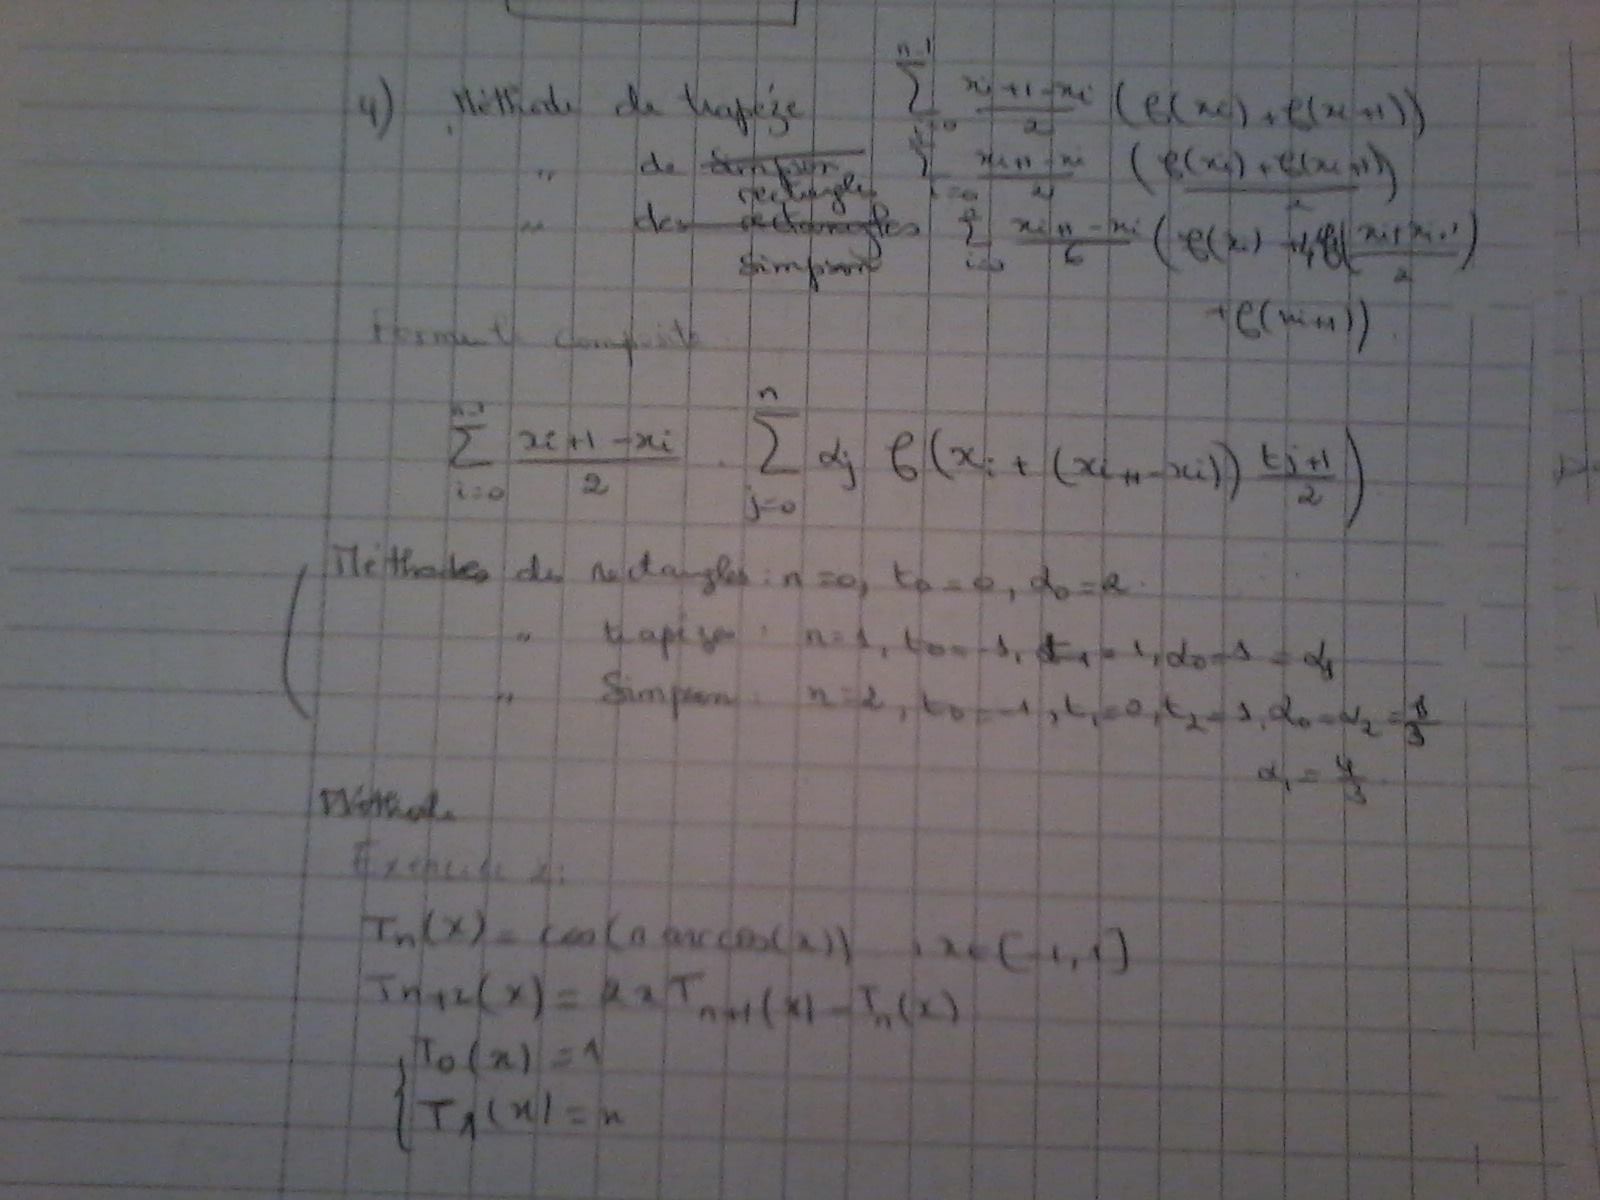 4) Méthode de trapéze \sum_{i=0}^{n-1} \frac{xi+1-xi}{2} (f(xi) + f(xi+1))
" de ~~simpson~~ rectangles \sum_{i=0} \frac{xi+1-xi}{2} (\frac{f(xi)+f(xi+1)}{2})
" des ~~rectangles~~ simpson \sum_{i=0} \frac{xi+1-xi}{6} (f(xi) + 4f(\frac{xi+xi+1}{2})
+ f(xi+1))
composite
\sum_{i=0}^{n-1} \frac{xi+1-xi}{2} . \sum_{j=0}^{n} αj f(xi + (xi+1-xi)) \frac{tj+1}{2})
Méthodes des rectangles : n=0, t0=0, α0=2.
" trapèze : n=1, t0=-1, t1=1, α0=1=α1
" Simpson : n=2, t0=-1, t1=0, t2=1, α0=α2=\frac{1}{3}
α1=\frac{4}{3}
Méthode
Exercice 2:
Tn(x) = cos(n arccos(x)) , x∈[-1,1]
Tn+2(x) = 2xTn+1(x) - Tn(x)
{ T0(x) = 1
T1(x) = x